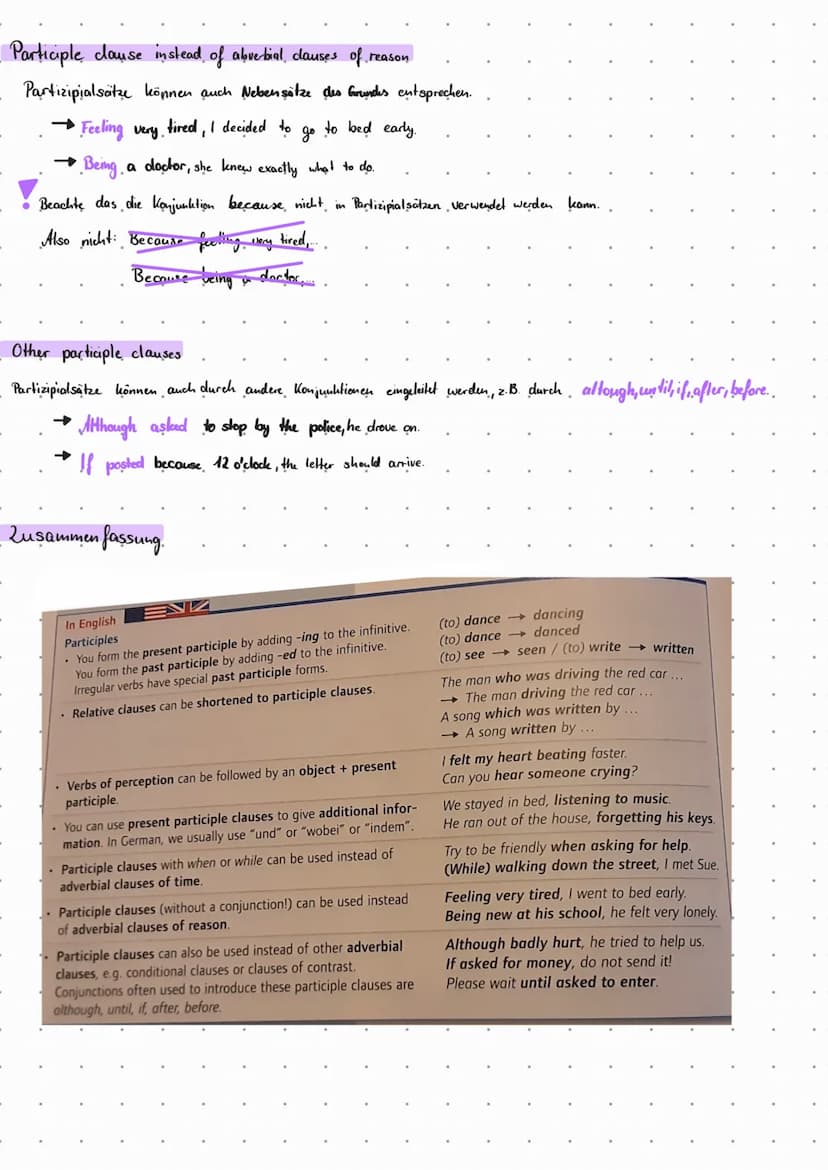 Participle clause instead of abverbial clauses of reason
Partizipialsätze können auch Nebensätze des Grundes entsprechen.
→ Feeling very tired, I decided to go to bed early.
→ Being a doctor, she knew exactly what to do.
! Beachte das die Konjunktion because nicht in Partizipialsätzen verwendet werden kann.
Also nicht: Because feeling very tired,...
Because being a doctor,...
Other participle clauses
Partizipialsätze können auch durch andere Konjunktionen eingeleitet werden, z.B. durch altough, until, if, after, before.
→ Although asked to stop by the police, he drove on.
→ If posted because 12 o'clock, the letter should arrive.
Zusammenfassung
In English
Participles
• You form the present participle by adding -ing to the infinitive.
(to) dance → dancing
You form the past participle by adding -ed to the infinitive.
(to) dance → danced
Irregular verbs have special past participle forms.
(to) see → seen / (to) write → written
• Relative clauses can be shortened to participle clauses.
The man who was driving the red car ...
→ The man driving the red car ...
A song which was written by ...
→ A song written by ...
• Verbs of perception can be followed by an object + present
participle.
I felt my heart beating faster.
Can you hear someone crying?
• You can use present participle clauses to give additional infor-
mation. In German, we usually use "und" or "wobei" or "indem".
We stayed in bed, listening to music.
He ran out of the house, forgetting his keys.
• Participle clauses with when or while can be used instead of
adverbial clauses of time.
Try to be friendly when asking for help.
(While) walking down the street, I met Sue.
• Participle clauses (without a conjunction!) can be used instead
of adverbial clauses of reason.
Feeling very tired, I went to bed early.
Being new at his school, he felt very lonely.
• Participle clauses can also be used instead of other adverbial
clauses, e.g. conditional clauses or clauses of contrast.
Conjunctions often used to introduce these participle clauses are
although, until, if, after, before.
Although badly hurt, he tried to help us.
If asked for money, do not send it!
Please wait until asked to enter.